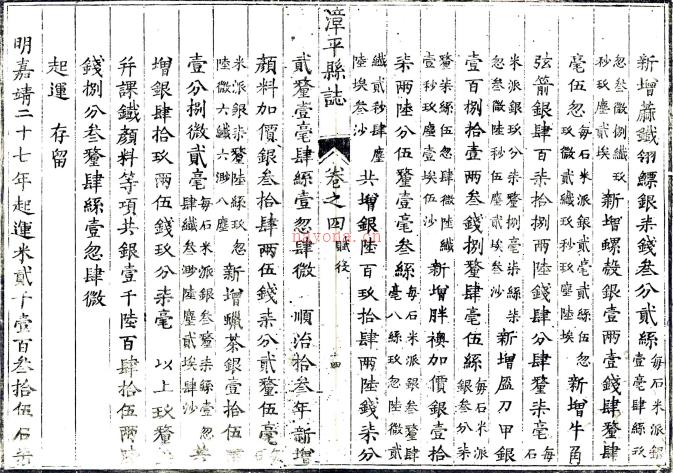 新增蔴鐵翎鰾銀柒錢叁分貳絲每石米派銀壹毫肆絲玖
忽叁微捌纖玖秒玖塵貳埃 新增螺殼銀壹兩壹錢肆釐
毫伍忽每石米派銀貳毫貳絲伍忽玖微貳纖玖秒玖塵陸埃 新增牛角
弦箭銀肆百柒拾捌兩陸錢肆分肆釐柒毫石
米派銀玖分柒釐捌毫柒絲柒忽叁微陸秒叁埃叁沙 新增盔刀甲銀
壹百捌拾壹兩叁錢捌釐肆毫伍絲每石米派銀叁分柒
釐柒絲伍忽肆微陸纖壹秒玖塵壹埃伍沙 新增胖襖加價銀壹拾
柒兩陸分伍釐壹毫叁絲每石米派銀叁釐肆毫八絲玖忽陸微貳
纖貳秒肆塵陸埃叁沙 共增銀陸百玖拾肆兩陸錢柒分
漳平縣誌 卷之四 賦役 十四
貳釐壹毫肆絲壹忽肆微 順治拾叁年新增
顏料加價銀叁拾肆兩伍錢柒分貳釐伍毫每
米派銀柒釐陸絲玖忽陸微六纖六渺八塵 新增蠟茶銀壹拾伍
壹分捌微貳毫每石米派銀叁釐柒絲壹忽肆纖叁渺陸塵貳埃肆沙 共
增銀肆拾玖兩伍錢玖分柒毫 以上玖釐
并課鐵顏料等項共銀壹千陸百肆拾伍兩陸
錢捌分叁釐肆絲壹忽肆微
起運 存留
明嘉靖二十七年起運米貳千壹百叁拾伍石新
nayona.cn